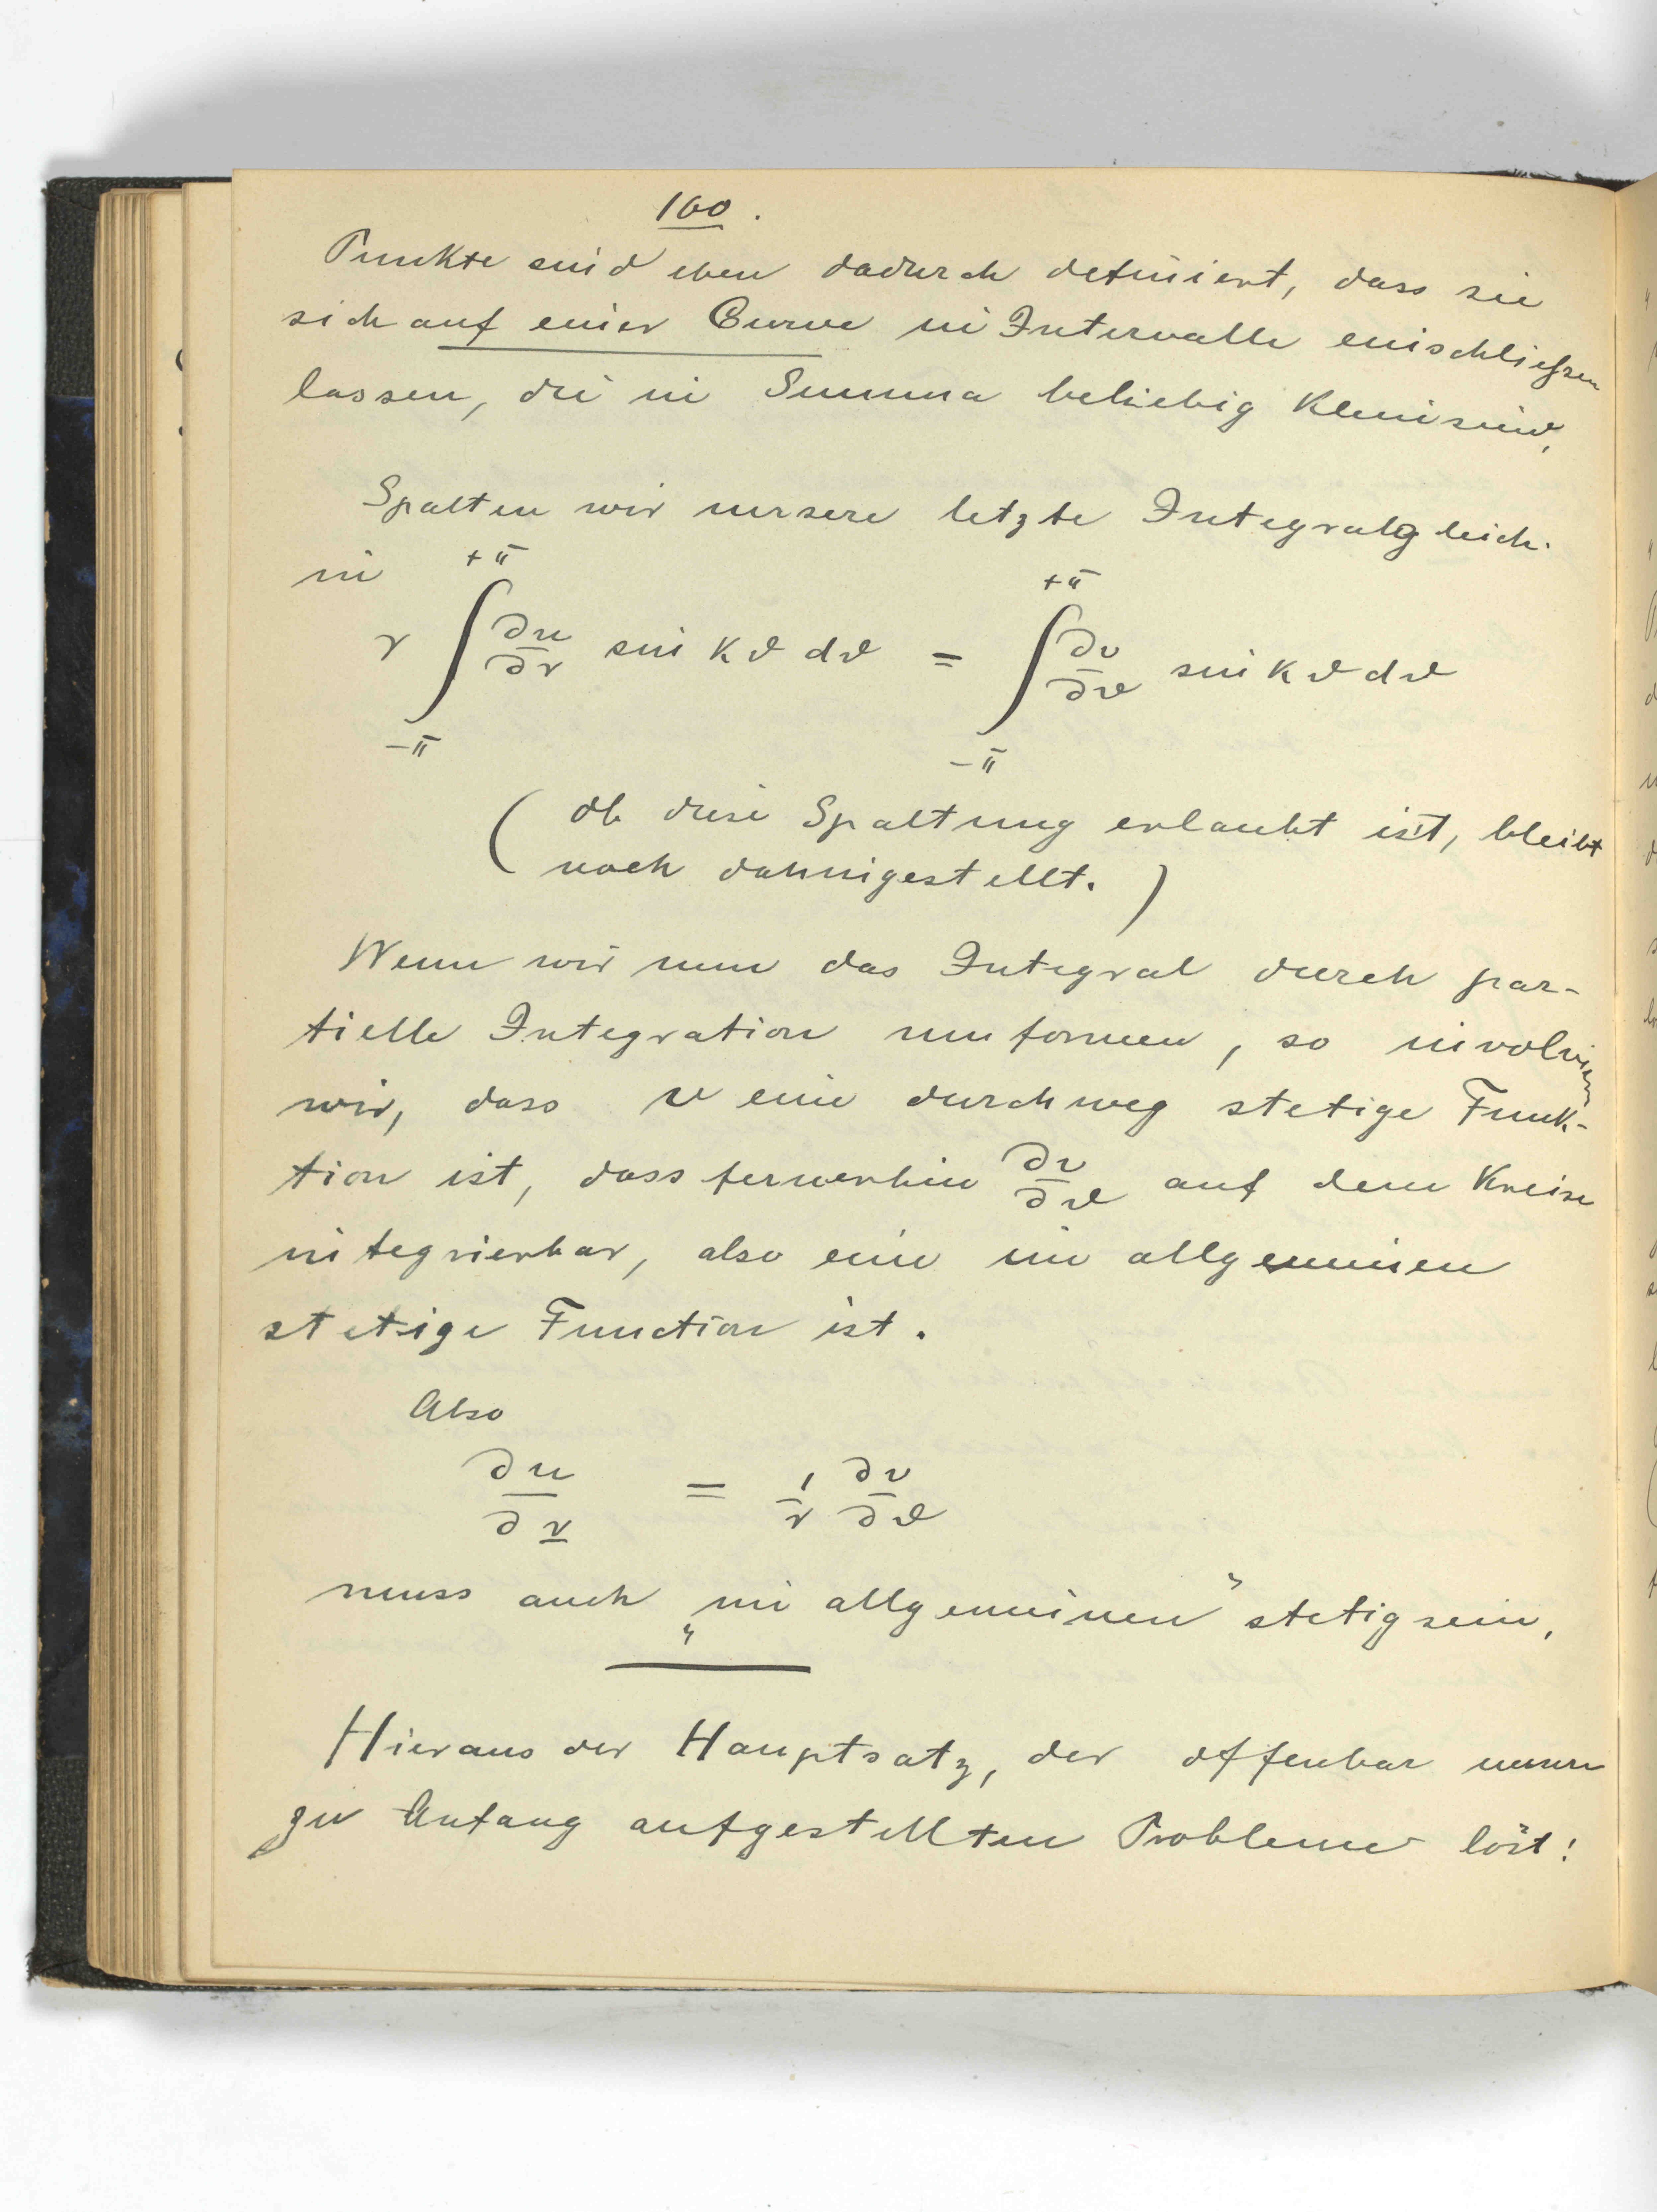 160.
Punkte sind eben dadurch definiert, dass sie
sich auf einer Curve in Intervalle einschließen
lassen, die in Summa beliebig klein sind.
Spalten wir unsere letzte Integralgleich.
in
r ∫_{-π}^{+π} ∂u/∂r sin kϑ dϑ = ∫_{-π}^{+π} ∂v/∂ϑ sin kϑ dϑ
(Ob diese Spaltung erlaubt ist, bleibt
noch dahingestellt.)
Wenn wir nun das Integral durch par-
tielle Integration umformen, so involvieren
wir, dass v eine durchweg stetige Funk-
tion ist, dass fernerhin ∂v/∂ϑ auf dem Kreise
integrierbar, also eine im allgemeinen
stetige Function ist.
Also
∂u/∂r = 1/r ∂v/∂ϑ
muss auch „im allgemeinen" stetig sein.
Hieraus der Hauptsatz, der offenbar unsere
zu Anfang aufgestellten Probleme löst!